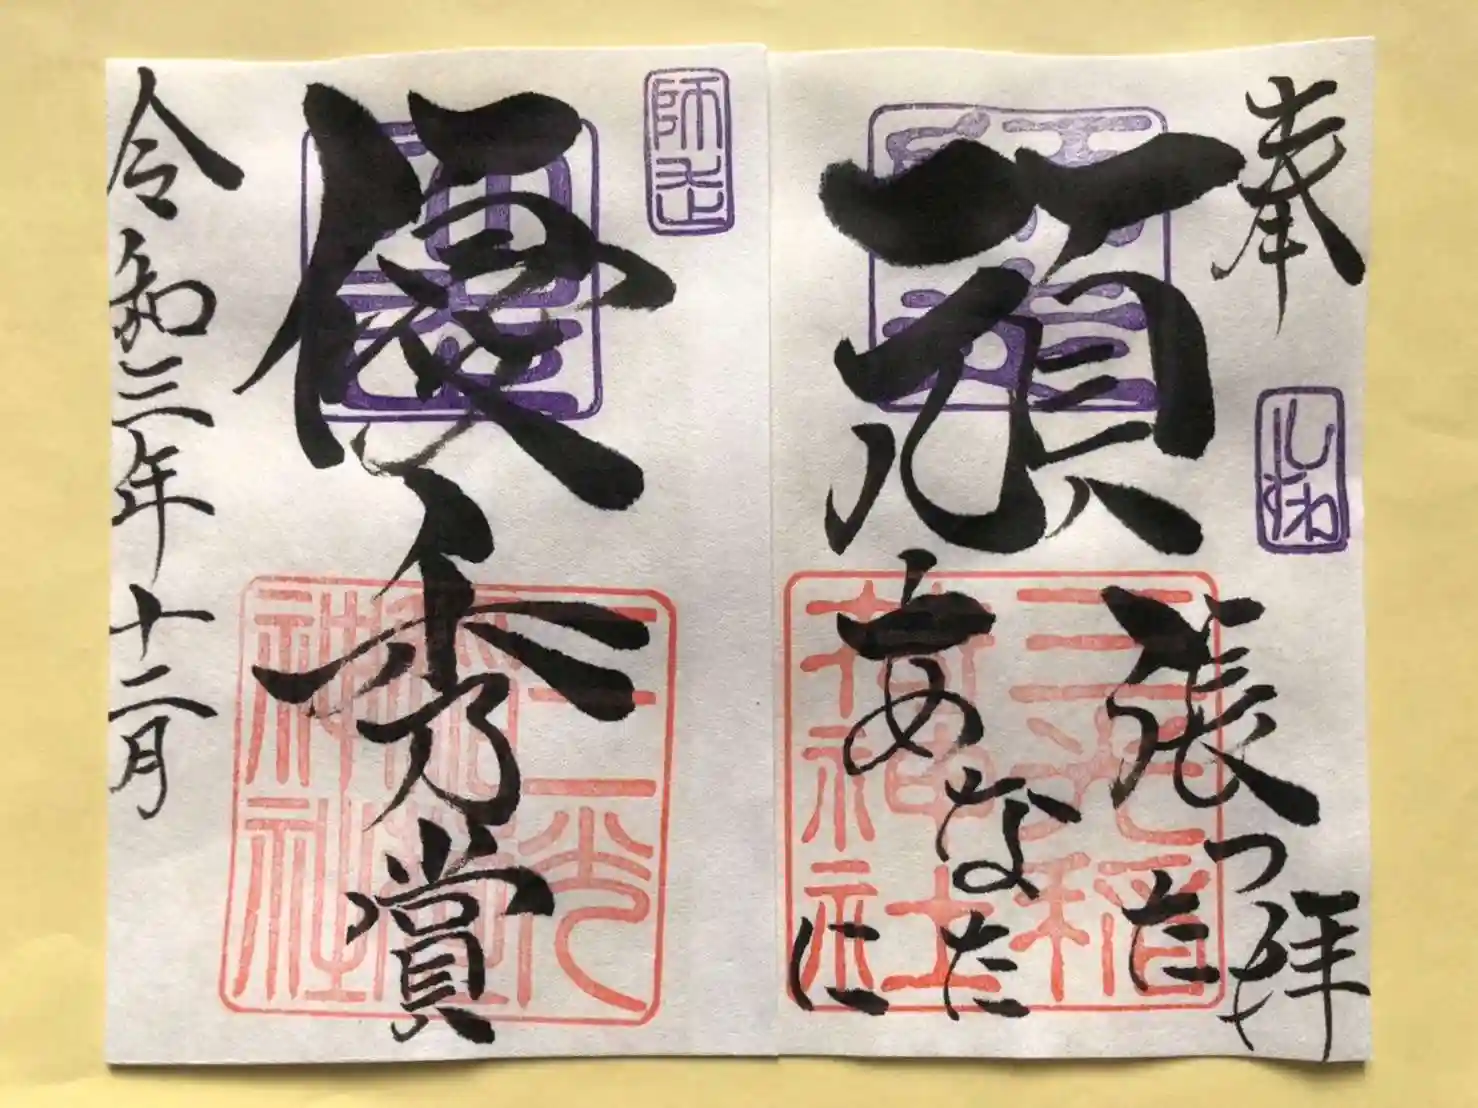 奉拝
しわす
頑張った
あなたに
三光稲荷神社
師走
優秀賞
三光稲荷神社
令和三年十二月